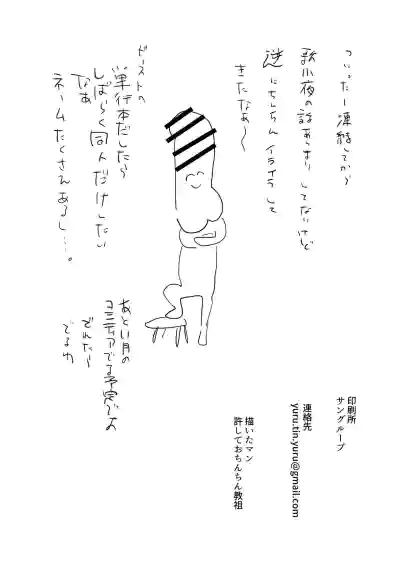 ついったー凍結してから
小夜の話あんまりしてないけど
逆にちんちんイライラして
きたなぁ〜
ゼーストの
単行本だしたら
しばらく同人だけしたい
なぁ
ネームたくさんあるし…。
あと11月の
コミティアでる予定だよ
でれたら
でるわ
印刷所
サングループ
連絡先
yuru.tin.yuru@gmail.com
描いたマン
許しておちんちん教祖